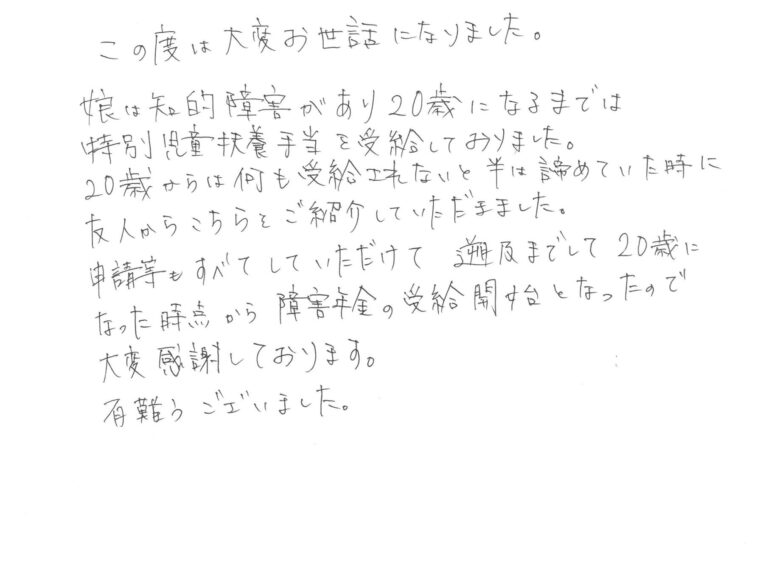 この度は大変お世話になりました。
娘は知的障害があり20歳になるまでは
特別児童扶養手当を受給しておりました。
20歳からは何も受給されないと半は諦めていた時に
友人からこちらをご紹介していただきました。
申請等もすべてしていただけて 遡及までして20歳に
なった時点から障害年金の受給開始となったので
大変感謝しております。
有難うございました。